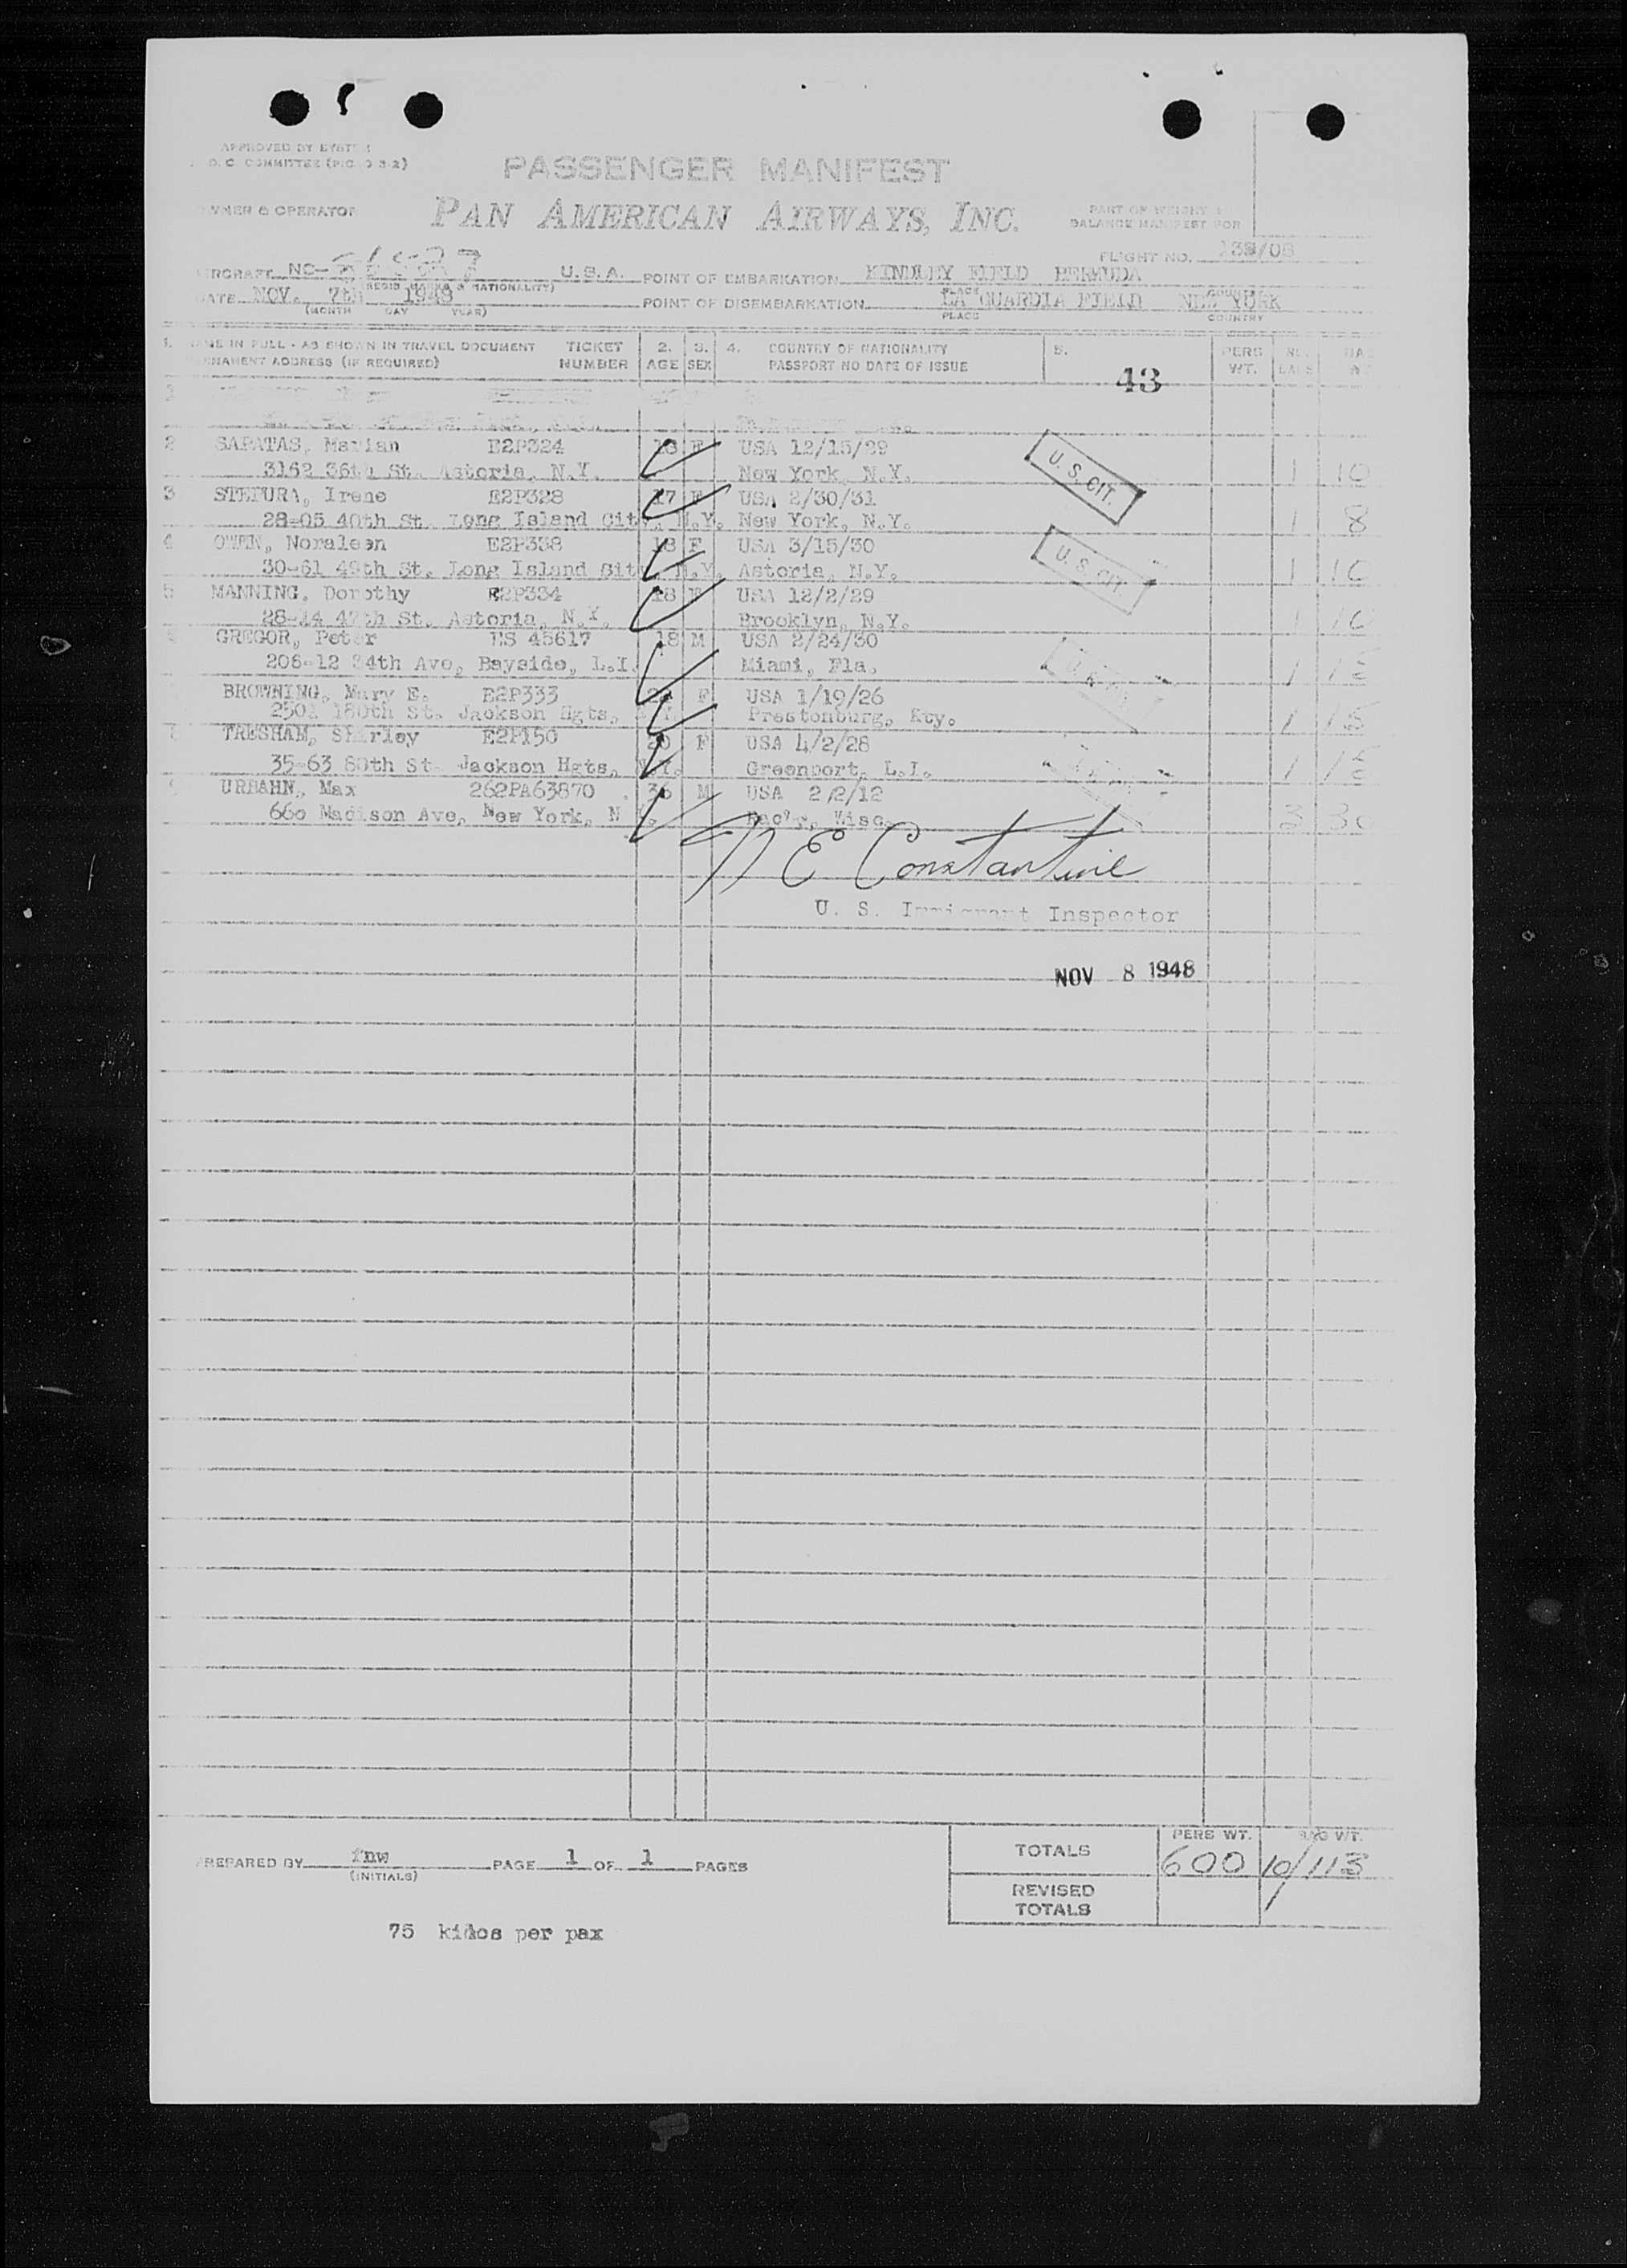 APPROVED BY
C COMMITTEE
PASSENGER MANIFEST
& OPERATOR PAN AMERICAN AIRWAYS, INC. PART OF WEIGHT &
BALANCE MANIFEST FOR
FLIGHT NO.
NC- U.S.A. POINT OF EMBARKATION KINDLEY FIELD BERMUDA
NOV. 7th 1948 POINT OF DISEMBARKATION LA GUARDIA FIELD NEW YORK
(MONTH DAY YEAR) PLACE COUNTRY
1. IN FULL - AS SHOWN IN TRAVEL DOCUMENT TICKET 2. 3. 4. COUNTRY OF NATIONALITY 5. PERS
ADDRESS (IF REQUIRED) NUMBER AGE SEX PASSPORT NO DATE OF ISSUE WT.
43
2 SAPATAS, Marian E2P324 18 F USA 12/15/29
3162 36th St. Astoria, N.Y. New York, N.Y. 1 10
U.S. CIT.
3 Irene E2P328 17 F USA 2/30/31
28-05 40th St. Long Island City, N.Y. New York, N.Y. 1 8
4 OWEN, Noraleen E2P338 18 F USA 3/15/30
30-61 49th St. Long Island City, N.Y. Astoria, N.Y. 1
U.S. CIT.
5 MANNING, Dorothy E2P334 18 F USA 12/2/29
28-14 47th St. Astoria, N.Y. Brooklyn, N.Y. 1
GREGOR, Peter 45617 18 M USA 2/24/30
208-12 34th Ave, Bayside, L.I. Miami, Fla. 1
BROWNING, Mary E. E2P333 F USA 1/19/26
180th St. Jackson Hgts, Prestonburg, Kty. 1
TRESHAM, Shirley E2P150 20 F USA 4/2/28
35-63 80th St. Jackson Hgts, N.Y. Greenport, L.I. 1
URBAHN, Max 262PA63870 36 M USA 2/2/12
660 Madison Ave, New York, N Wisc. 3
N E Constantine
U. S. Immigrant Inspector
NOV 8 1948
PREPARED BY fnw PAGE 1 OF 1 PAGES
(INITIALS)
PERS WT. BAG WT.
TOTALS 600 10/113
REVISED
TOTALS
75 kilos per pax